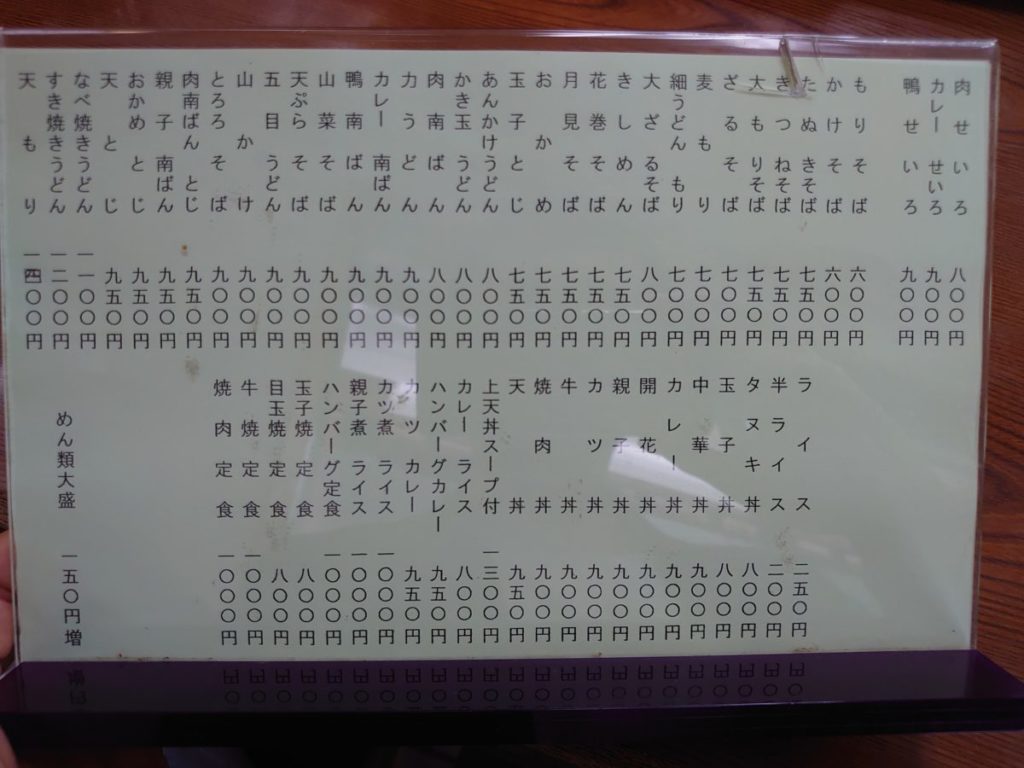 肉せいろ 八〇〇円
カレーせいろ 九〇〇円
鴨せいろ 九〇〇円
もりそば 六〇〇円
かけそば 六〇〇円
たぬきそば 七五〇円
きつねそば 七五〇円
大もりそば 七五〇円
ざるそば 七〇〇円
麦もり 七〇〇円
細うどんもり 七〇〇円
大ざるそば 八〇〇円
きしめん 七五〇円
花巻そば 七五〇円
月見そば 七五〇円
おかめ 七五〇円
玉子とじ 七五〇円
あんかけうどん 八〇〇円
かき玉うどん 八〇〇円
肉南ばん 八〇〇円
力うどん 九〇〇円
カレー南ばん 九〇〇円
鴨南ばん 九〇〇円
山菜そば 九〇〇円
天ぷらそば 九〇〇円
五目うどん 九〇〇円
山かけ 九〇〇円
とろろそば 九〇〇円
肉南ばんとじ 九五〇円
親子南ばん 九五〇円
おかめとじ 九五〇円
天とじ 九五〇円
なべ焼きうどん 一一〇〇円
すき焼きうどん 一二〇〇円
天もり 一四〇〇円
ライス 二五〇円
半ライス 二〇〇円
タヌキ丼 八〇〇円
玉子丼 八〇〇円
中華丼 九〇〇円
カレー丼 九〇〇円
開花丼 九〇〇円
親子丼 九〇〇円
カツ丼 九〇〇円
牛丼 九〇〇円
焼肉丼 九〇〇円
天丼 九五〇円
上天丼スープ付 一三〇〇円
カレーライス 八〇〇円
ハンバーグカレー 九五〇円
カツカレー 九五〇円
カツ煮ライス 一〇〇〇円
親子煮ライス 一〇〇〇円
ハンバーグ定食 一〇〇〇円
玉子焼定食 八〇〇円
目玉焼定食 八〇〇円
牛焼定食 一〇〇〇円
焼肉定食 一〇〇〇円
めん類大盛 一五〇円増